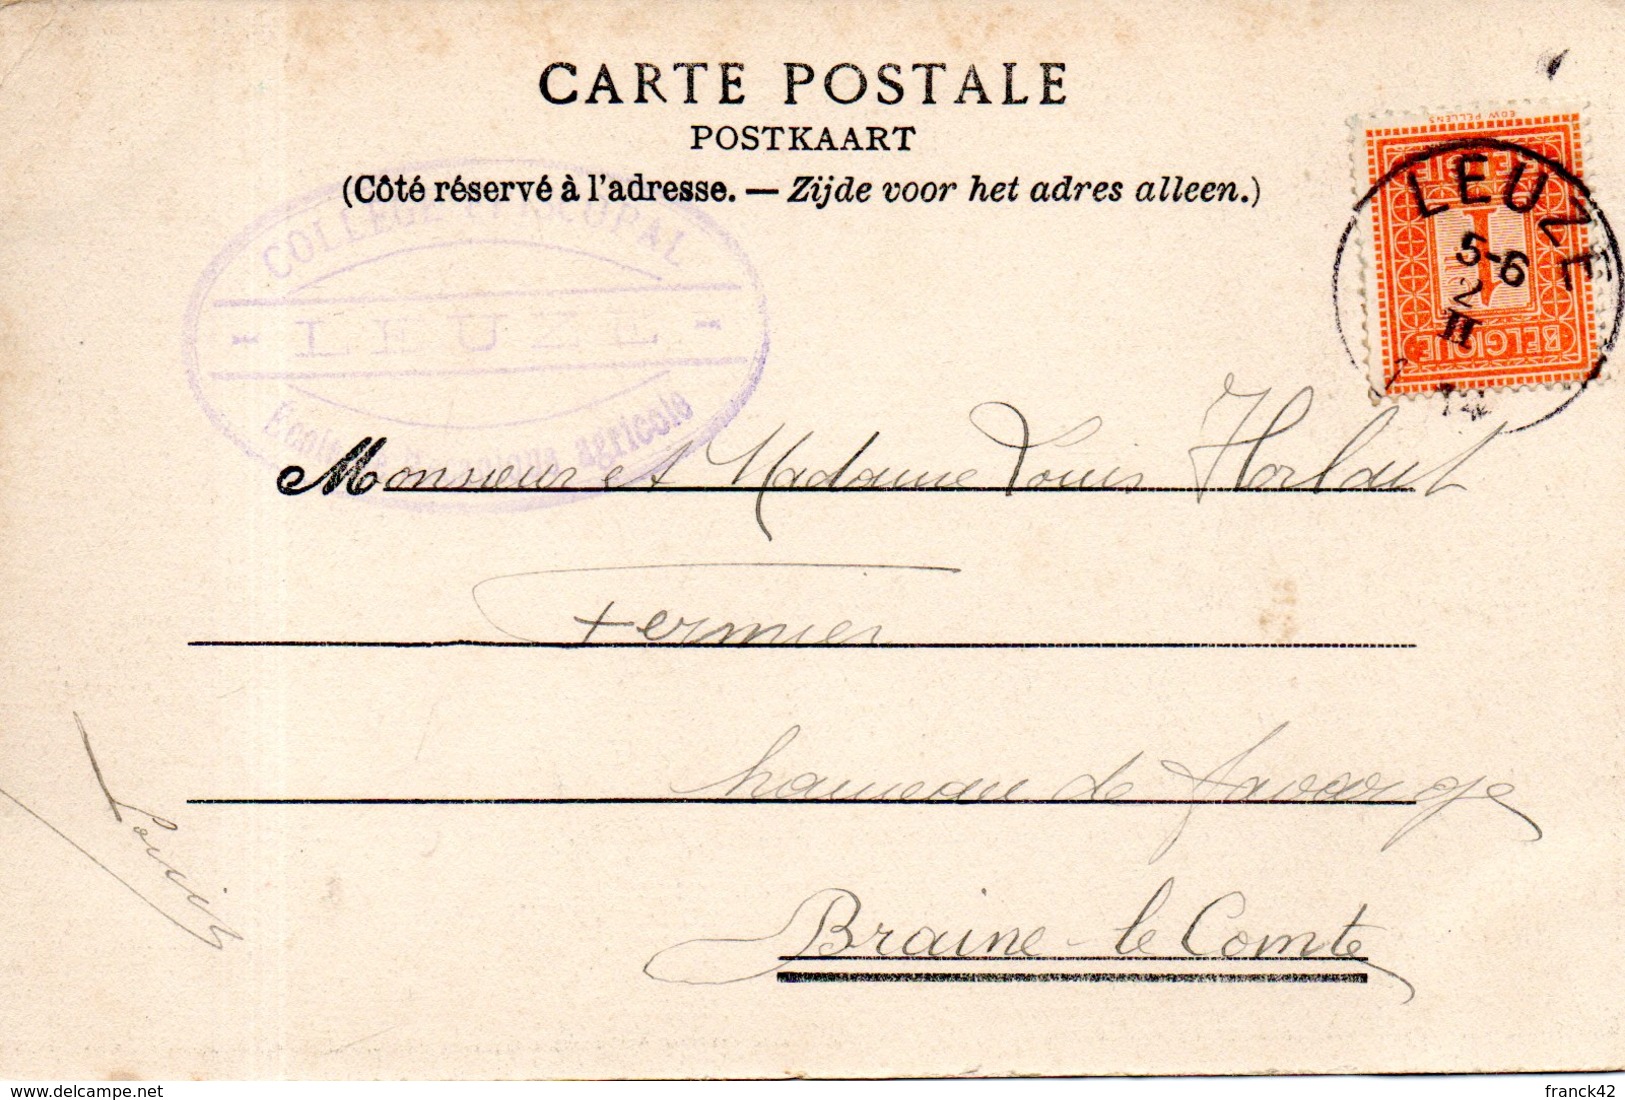 CARTE POSTALE
POSTKAART
(Côté réservé à l'adresse. — Zijde voor het adres alleen.)
EDW PELLENS
BELGIË
1
BELGIQUE
LEUZE
5-6
2
II
14
COLLÈGE EPISCOPAL
- LEUZE -
agricole
Monsieur et Madame Louis Horlait
Fermier
hameau de
Braine-le Comte
website : delcampe.net
franck42